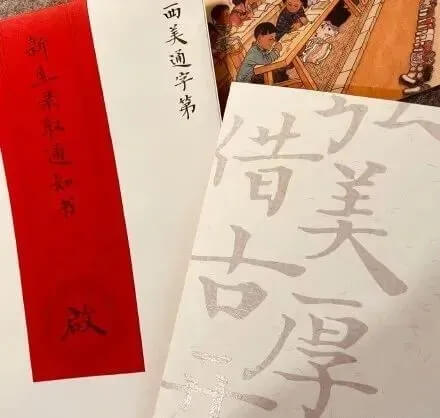 西美通字第
新生录取通知书
啟
弘美厚
借古开